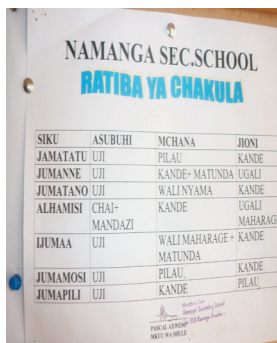 NAMANGA SEC.SCHOOL
RATIBA YA CHAKULA
SIKU ASUBUHI MCHANA JIONI
JAMATATU UJI PILAU KANDE
JUMANNE UJI KANDE+ MATUNDA UGALI
JUMATANO UJI WALI NYAMA KANDE
ALHAMISI CHAI+ KANDE UGALI
MANDAZI MAHARAG
IJUMAA UJI WALI MAHARAGE + KANDE
MATUNDA
JUMAMOSI UJI PILAU KANDE
JUMAPILI UJI KANDE PILAU
Namanga Secondary School
PASCAL
MKUU WA SHULE